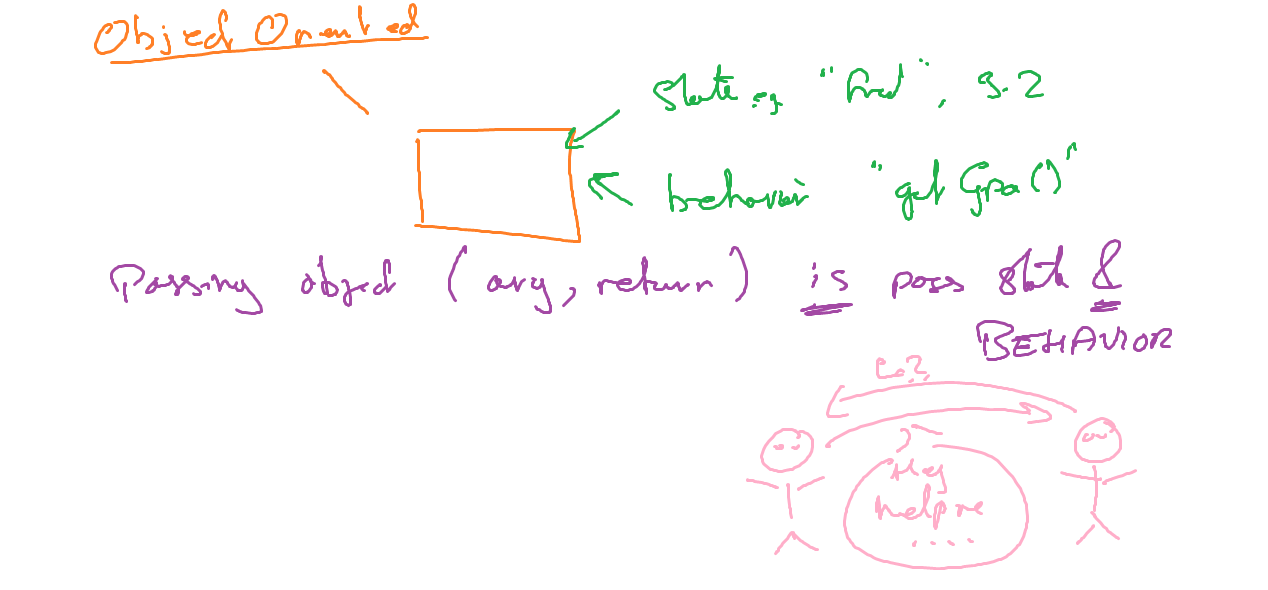 Object Oriented
State eg "Fred", 3.2
behavior "get Gpa()"
Passing object (arg, return) is pass state &
BEHAVIOR
Hey
help me
....